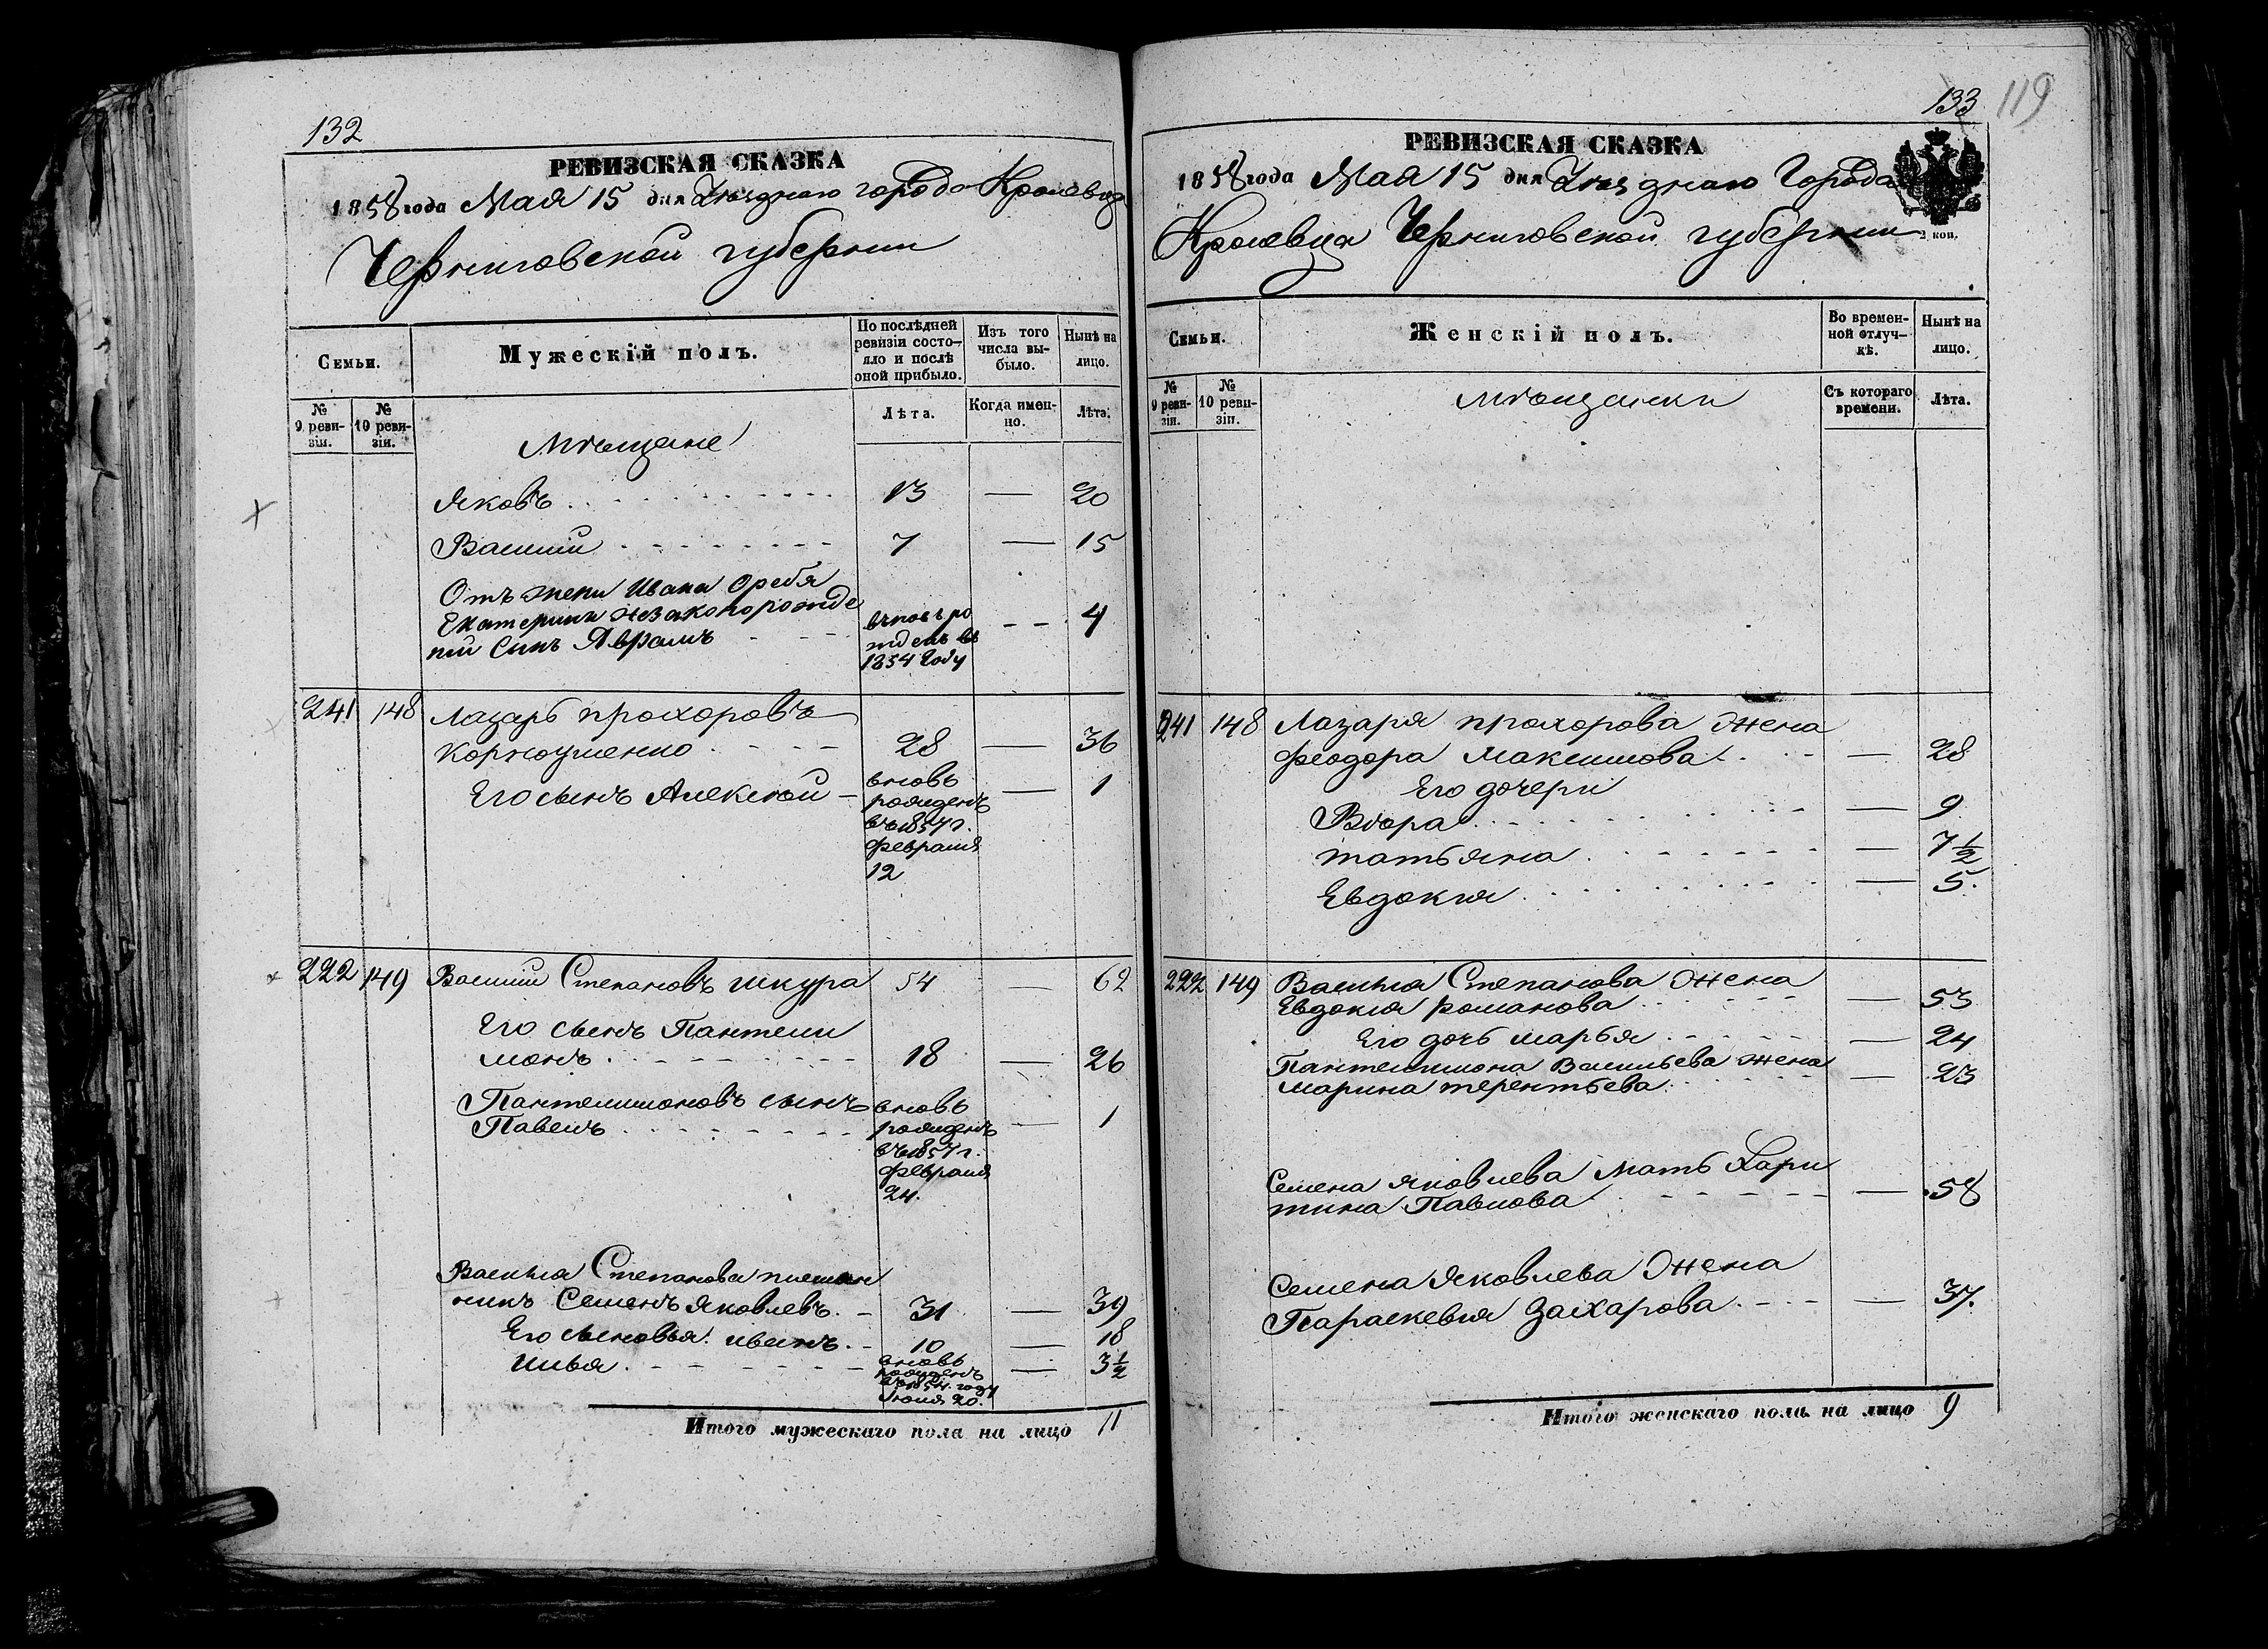 132
РЕВИЗСКАЯ СКАЗКА
1858 года Мая 15 дня Уѣзднаго города Кролевца
Черниговской губернии
Семьи.
Мужескій полъ.
По послѣдней ревизіи состояло и послѣ оной прибыло.
Изъ того числа выбыло.
Нынѣ на лицо.
№ 9 ревизіи.
№ 10 ревизіи.
Лѣта.
Когда именно.
Лѣта.
Мѣщане
Яковъ 13 — 20
Василій 7 — 15
Отъ жены Ивана
Екатерины незаконорожде
ний Сынъ Аврамъ
вновь ро
жденъ въ
1854 году
4
241 148 Лазарь Прохоровъ
Корноушенко 28 — 36
Его сынъ Алексѣй —
вновь
рожденъ
въ 1857 г.
февраля
12
— 1
222 149 Василій Степановъ Шкура 54 — 62
Его сынъ Пантели
монъ 18 — 26
Пантелимоновъ сынъ
Павелъ
вновь
рожденъ
въ 1857 г.
февраля
24.
— 1
Василія Степанова племян
никъ Семенъ Яковлевъ. — 31 — 39
Его сыновья: Иванъ. — 10 — 18
Илья.
вновь
рожденъ
въ 1854. году
Июня 20.
— 3½
Итого мужескаго пола на лицо 11
133 119
РЕВИЗСКАЯ СКАЗКА
1858 года Мая 15 дня Уѣзднаго Города
Кролевца Черниговской губернии
2 коп.
Семьи.
Женскій полъ.
Во временной отлучкѣ.
Нынѣ на лицо.
№ 9 ревизіи.
№ 10 ревизіи.
Съ котораго времени.
Лѣта.
Мѣщанки
241 148 Лазаря Прохорова Жена
Феодора Максимова — 28
Его дочери
Вѣра — 9
Татьяна — 7½
Евдокия — 5.
222 149 Василия Степанова Жена
Евдокия Романова — 53
Его дочь Марья — 24
Пантелимона Васильева жена
Марина Терентьева — 23
Семена Яковлева Мать Хари
тина Павлова — 58
Семена Яковлева Жена
Параскевия Захарова. — 37.
Итого женскаго пола на лицо 9